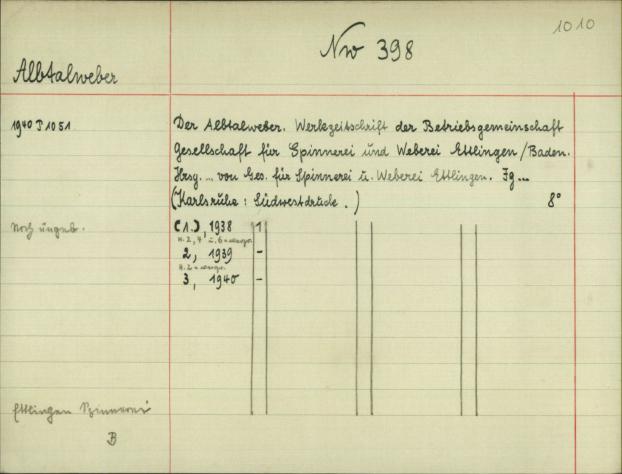 1010
Nw 398
Albtalweber
1940 J 1051
Der Albtalweber. Werkzeitschrift der Betriebsgemeinschaft
Gesellschaft für Spinnerei und Weberei Ettlingen/Baden.
Hrsg. ... von Ges. für Spinnerei u. Weberei Ettlingen. Jg...
(Karlsruhe: Südwestdruck.) 8°
Noch ungeb. (1.), 1938 1
n. 2, 4 u. 6 =
2, 1939 -
n. 2 =
3, 1940 -
Ettlingen Spinnerei
B